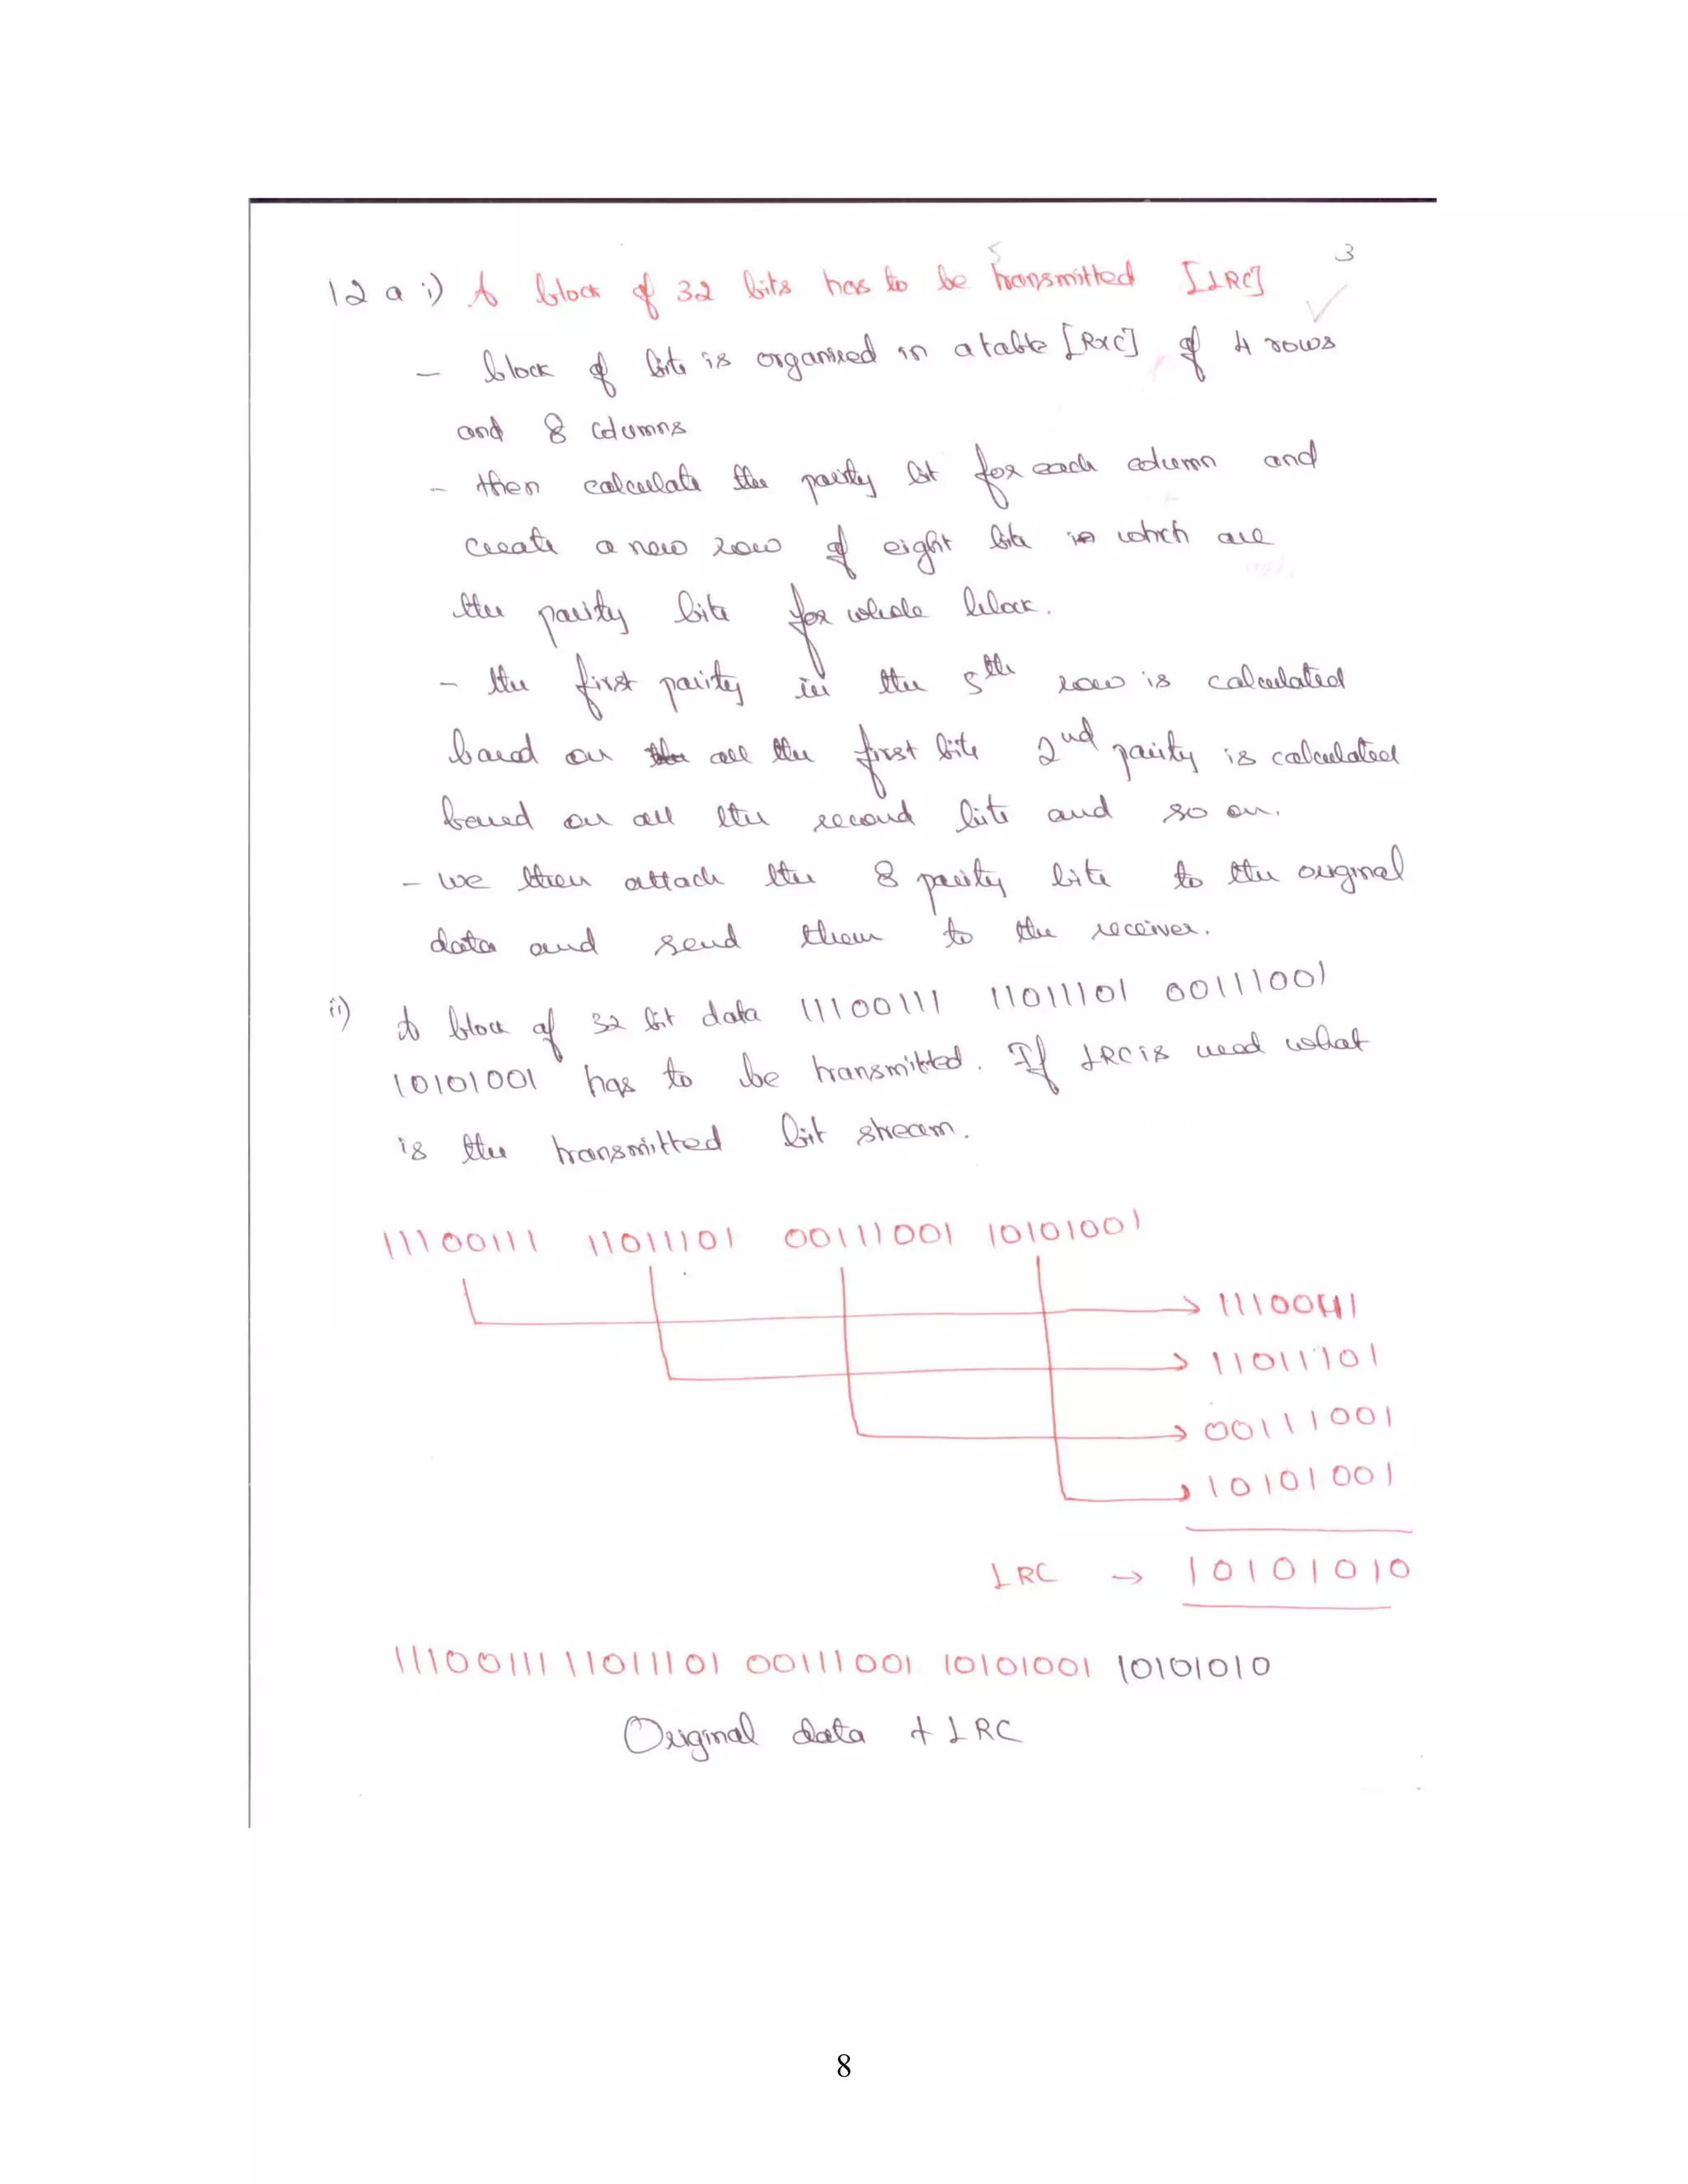 3
12 a i) A block of 32 bits has to be transmitted [LRC]
- block of bits is organised in a table [RxC] of 4 rows
and 8 columns
- then calculate the parity bit for each column and
create a new row of eight bits which are
the parity bits for whole block.
- the first parity in the 5th row is calculated
based on all the first bits 2nd parity is calculated
based on all the second bits and so on.
- we then attach the 8 parity bits to the original
data and send them to the receiver.
ii) A block of 32 bit data 11100111 11011101 00111001
10101001 has to be transmitted. If LRC is used what
is the transmitted bit stream.
11100111 11011101 00111001 10101001
11100111
11011101
00111001
10101001
LRC → 10101010
11100111 11011101 00111001 10101001 10101010
Original data + LRC
8